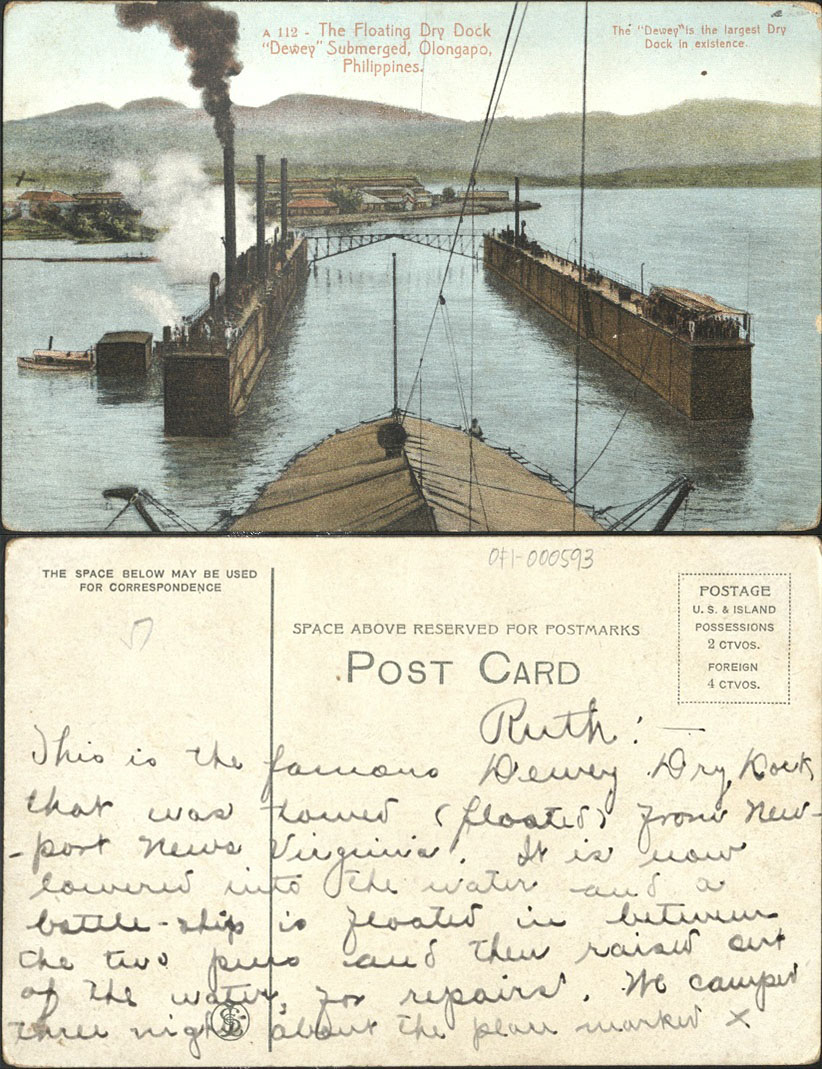 A 112 - The Floating Dry Dock
"Dewey" Submerged, Olongapo,
Philippines.
The "Dewey" is the largest Dry
Dock in existence.
THE SPACE BELOW MAY BE USED
FOR CORRESPONDENCE
OF1-000593
SPACE ABOVE RESERVED FOR POSTMARKS
POST CARD
POSTAGE
U. S. & ISLAND
POSSESSIONS
2 CTVOS.
FOREIGN
4 CTVOS.
Ruth! —
This is the famous Dewey Dry Dock
that was towed (floated) from New-
-port News Virginia. It is now
lowered into the water and a
battle-ship is floated in between
the two piers and then raised out
of the water, for repairs. We camped
three nights about the place marked X